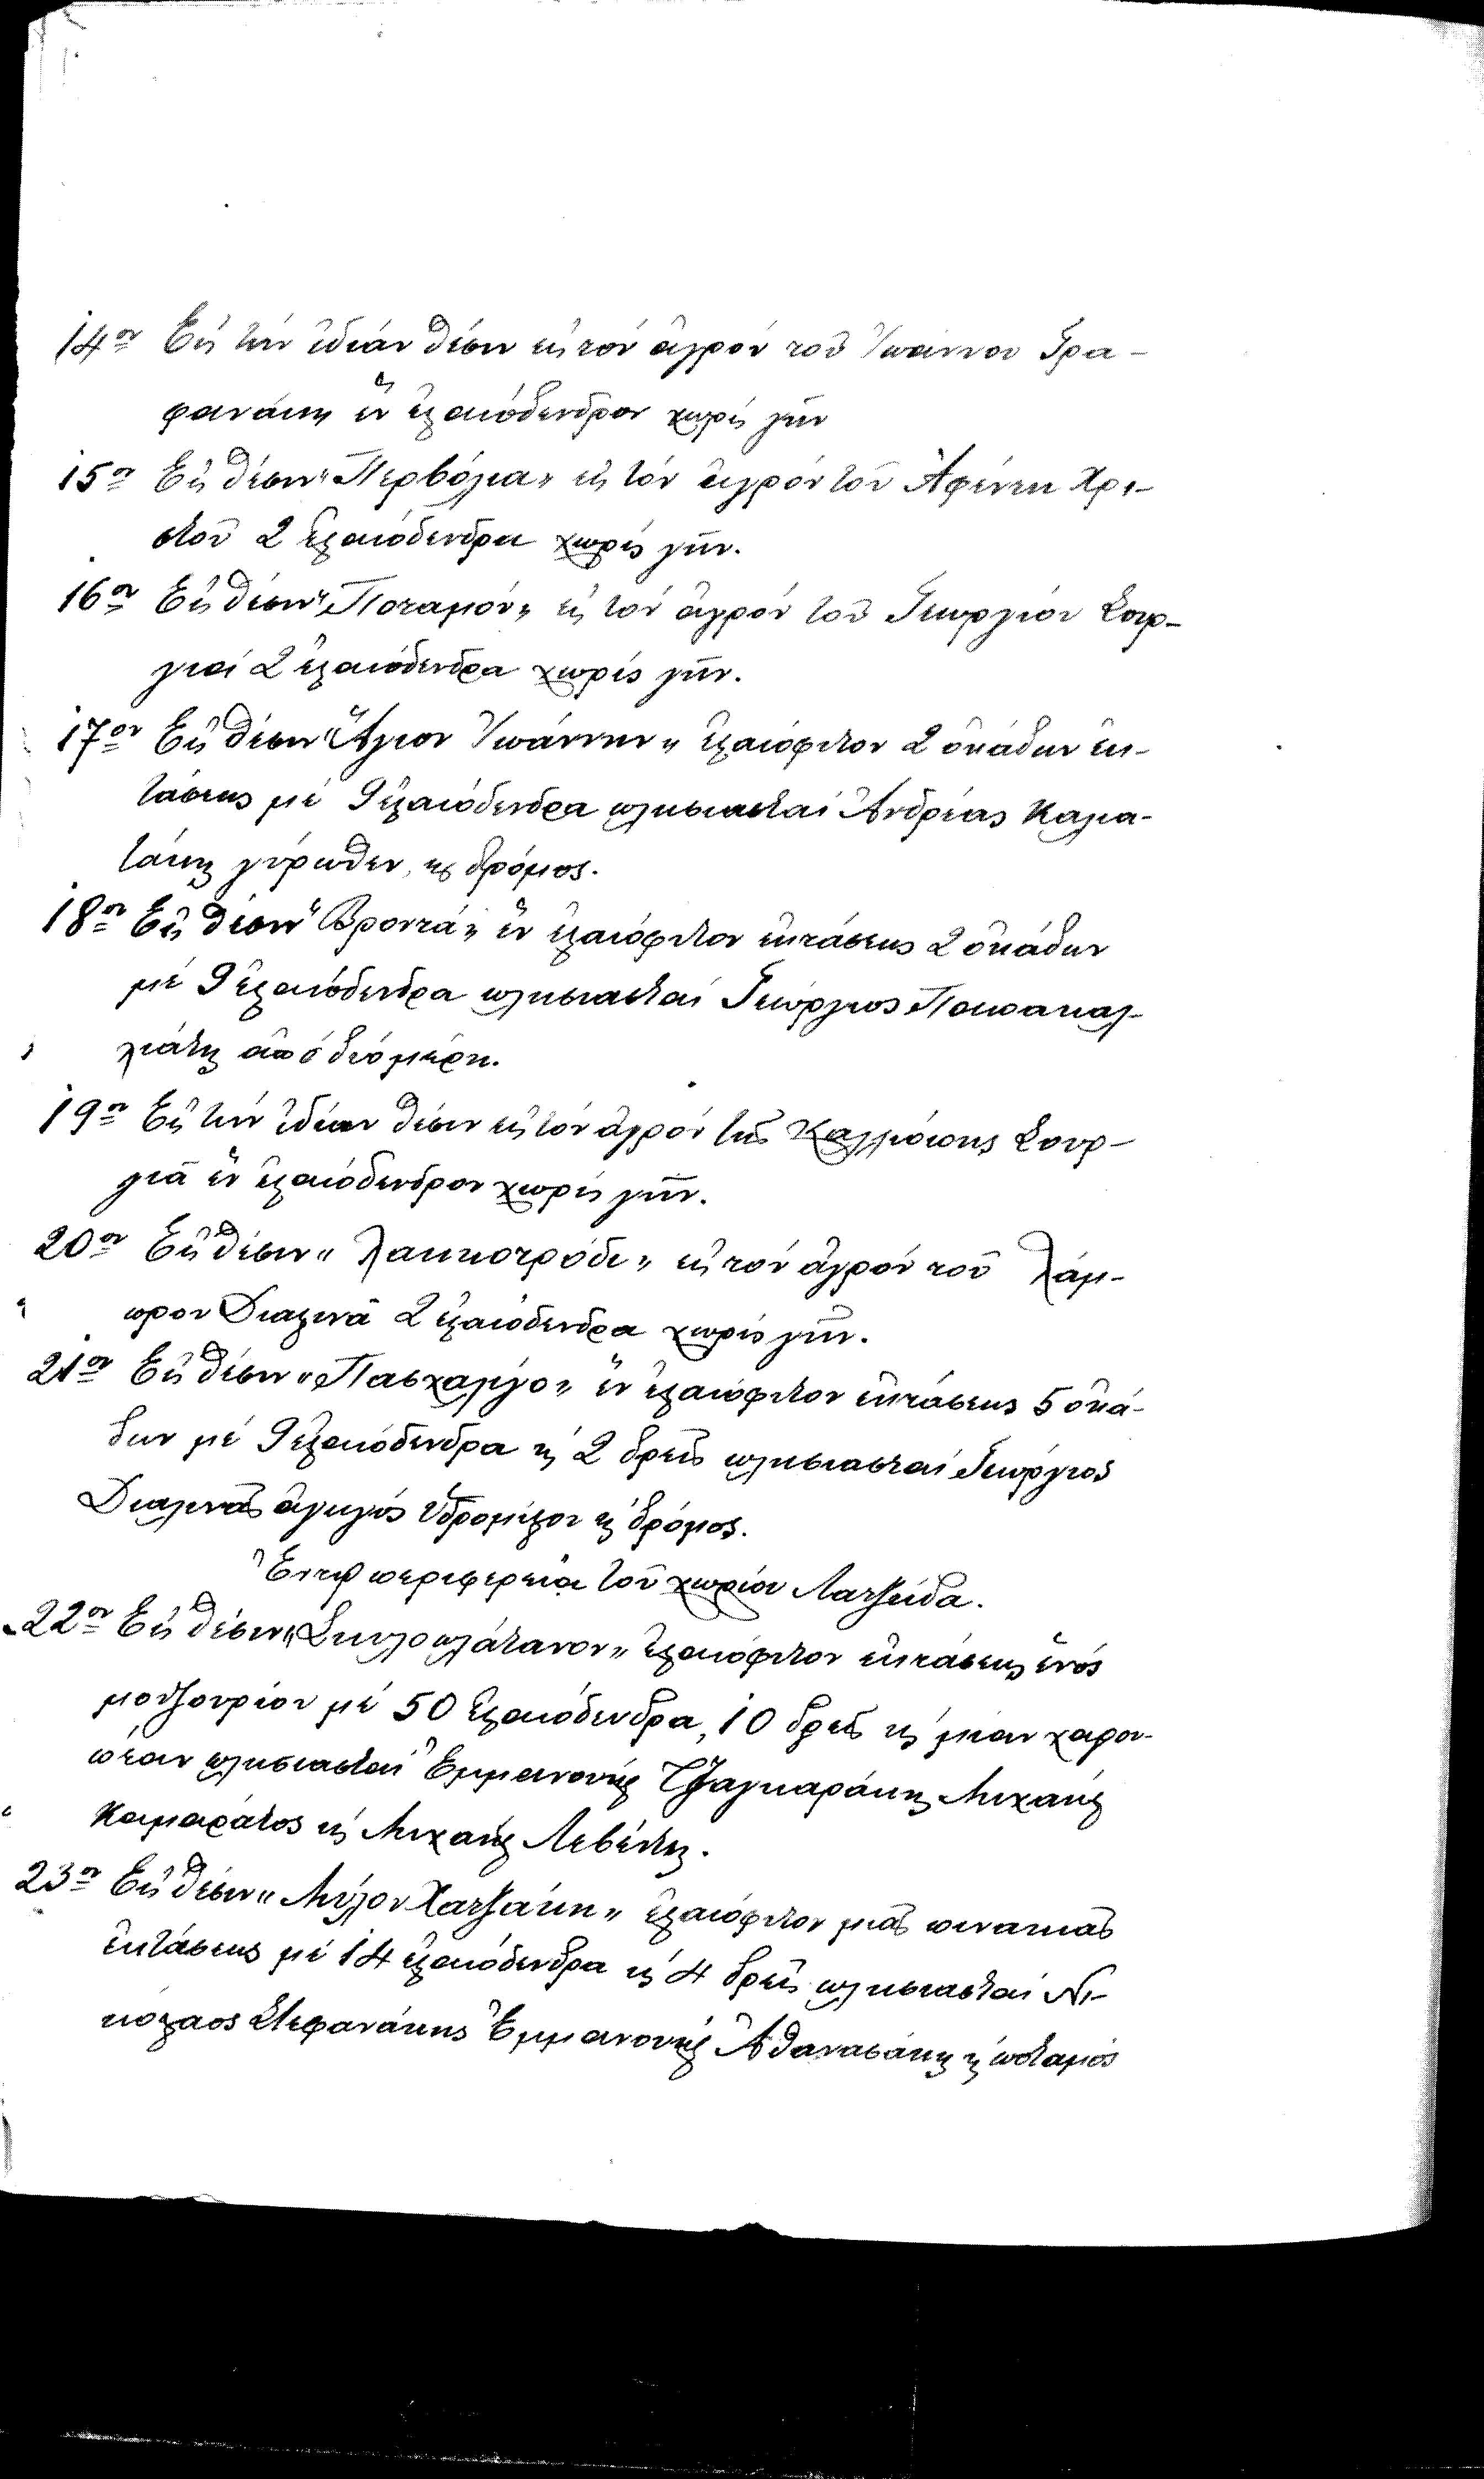 14ον Εἰς τήν ἰδίαν θέσιν εἰς τόν ἀγρόν τοῦ Ἰωάννου Γρα-
φανάκη ἕν ἐλαιόδενδρον χωρίς γῆν
15ον Εἰς θέσιν "Περβόλια" εἰς τόν ἀγρόν τοῦ Ἀφέντη Χρι-
στοῦ 2 ἐλαιόδενδρα χωρίς γῆν.
16ον Εἰς θέσιν "Ποταμόν" εἰς τόν ἀγρόν τοῦ Γεωργίου Σουρ-
γιά 2 ἐλαιόδενδρα χωρίς γῆν.
17ον Εἰς θέσιν "Ἅγιον Ἰωάννην" ἐλαιόφυτον 2 ὀκάδων ἐκ-
τάσεως μέ 9 ἐλαιόδενδρα πλησιασταί Ἀνδρέας Καλια-
τάκης γύρωθεν, κ δρόμος.
18ον Εἰς θέσιν "Βροντά" ἕν ἐλαιόφυτον ἐκτάσεως 2 ὀκάδων
μέ 9 ἐλαιόδενδρα πλησιασταί Γεώργιος
ἀπό δύο μέρη.
19ον Εἰς τήν ἰδίαν θέσιν εἰς τόν ἀγρόν τῆς Καλλιόπης Σουρ-
γιᾶ ἕν ἐλαιόδενδρον χωρίς γῆν.
20ον Εἰς θέσιν "Λακκοτρόδι" εἰς τόν ἀγρόν τοῦ Λάμ-
πρου Διαλινᾶ 2 ἐλαιόδενδρα χωρίς γῆν.
21ον Εἰς θέσιν "Πασχαλίγο" ἕν ἐλαιόφυτον ἐκτάσεως 5 ὀκά-
δων μέ 9 ἐλαιόδενδρα κ 2 δρεῖς πλησιασταί Γεώργιος
Διαλινᾶς ἀγωγός ὑδρομύλου κ δρόμος.
Ἐν τῇ περιφερείᾳ τοῦ χωρίου Λατζίδα.
22ον Εἰς θέσιν "Σκυλοπλάτανον" ἐλαιόφυτον ἐκτάσεως ἑνός
μουζουρίου μέ 50 ἐλαιόδενδρα, 10 δρεῖς κ μίαν χαρου-
πέαν πλησιασταί Ἐμμανουήλ Τζαγκαράκης Μιχαήλ
Καμαράτος κ Μιχαήλ Λεβέντης.
23ον Εἰς θέσιν "Μύλον Χατζάκη" ἐλαιόφυτον μιᾶς πινακιᾶς
ἐκτάσεως μέ 14 ἐλαιόδενδρα κ 4 δρεῖς πλησιασταί Νι-
κόλαος Στεφανάκης Ἐμμανουήλ Ἀθανασάκης κ ποταμός